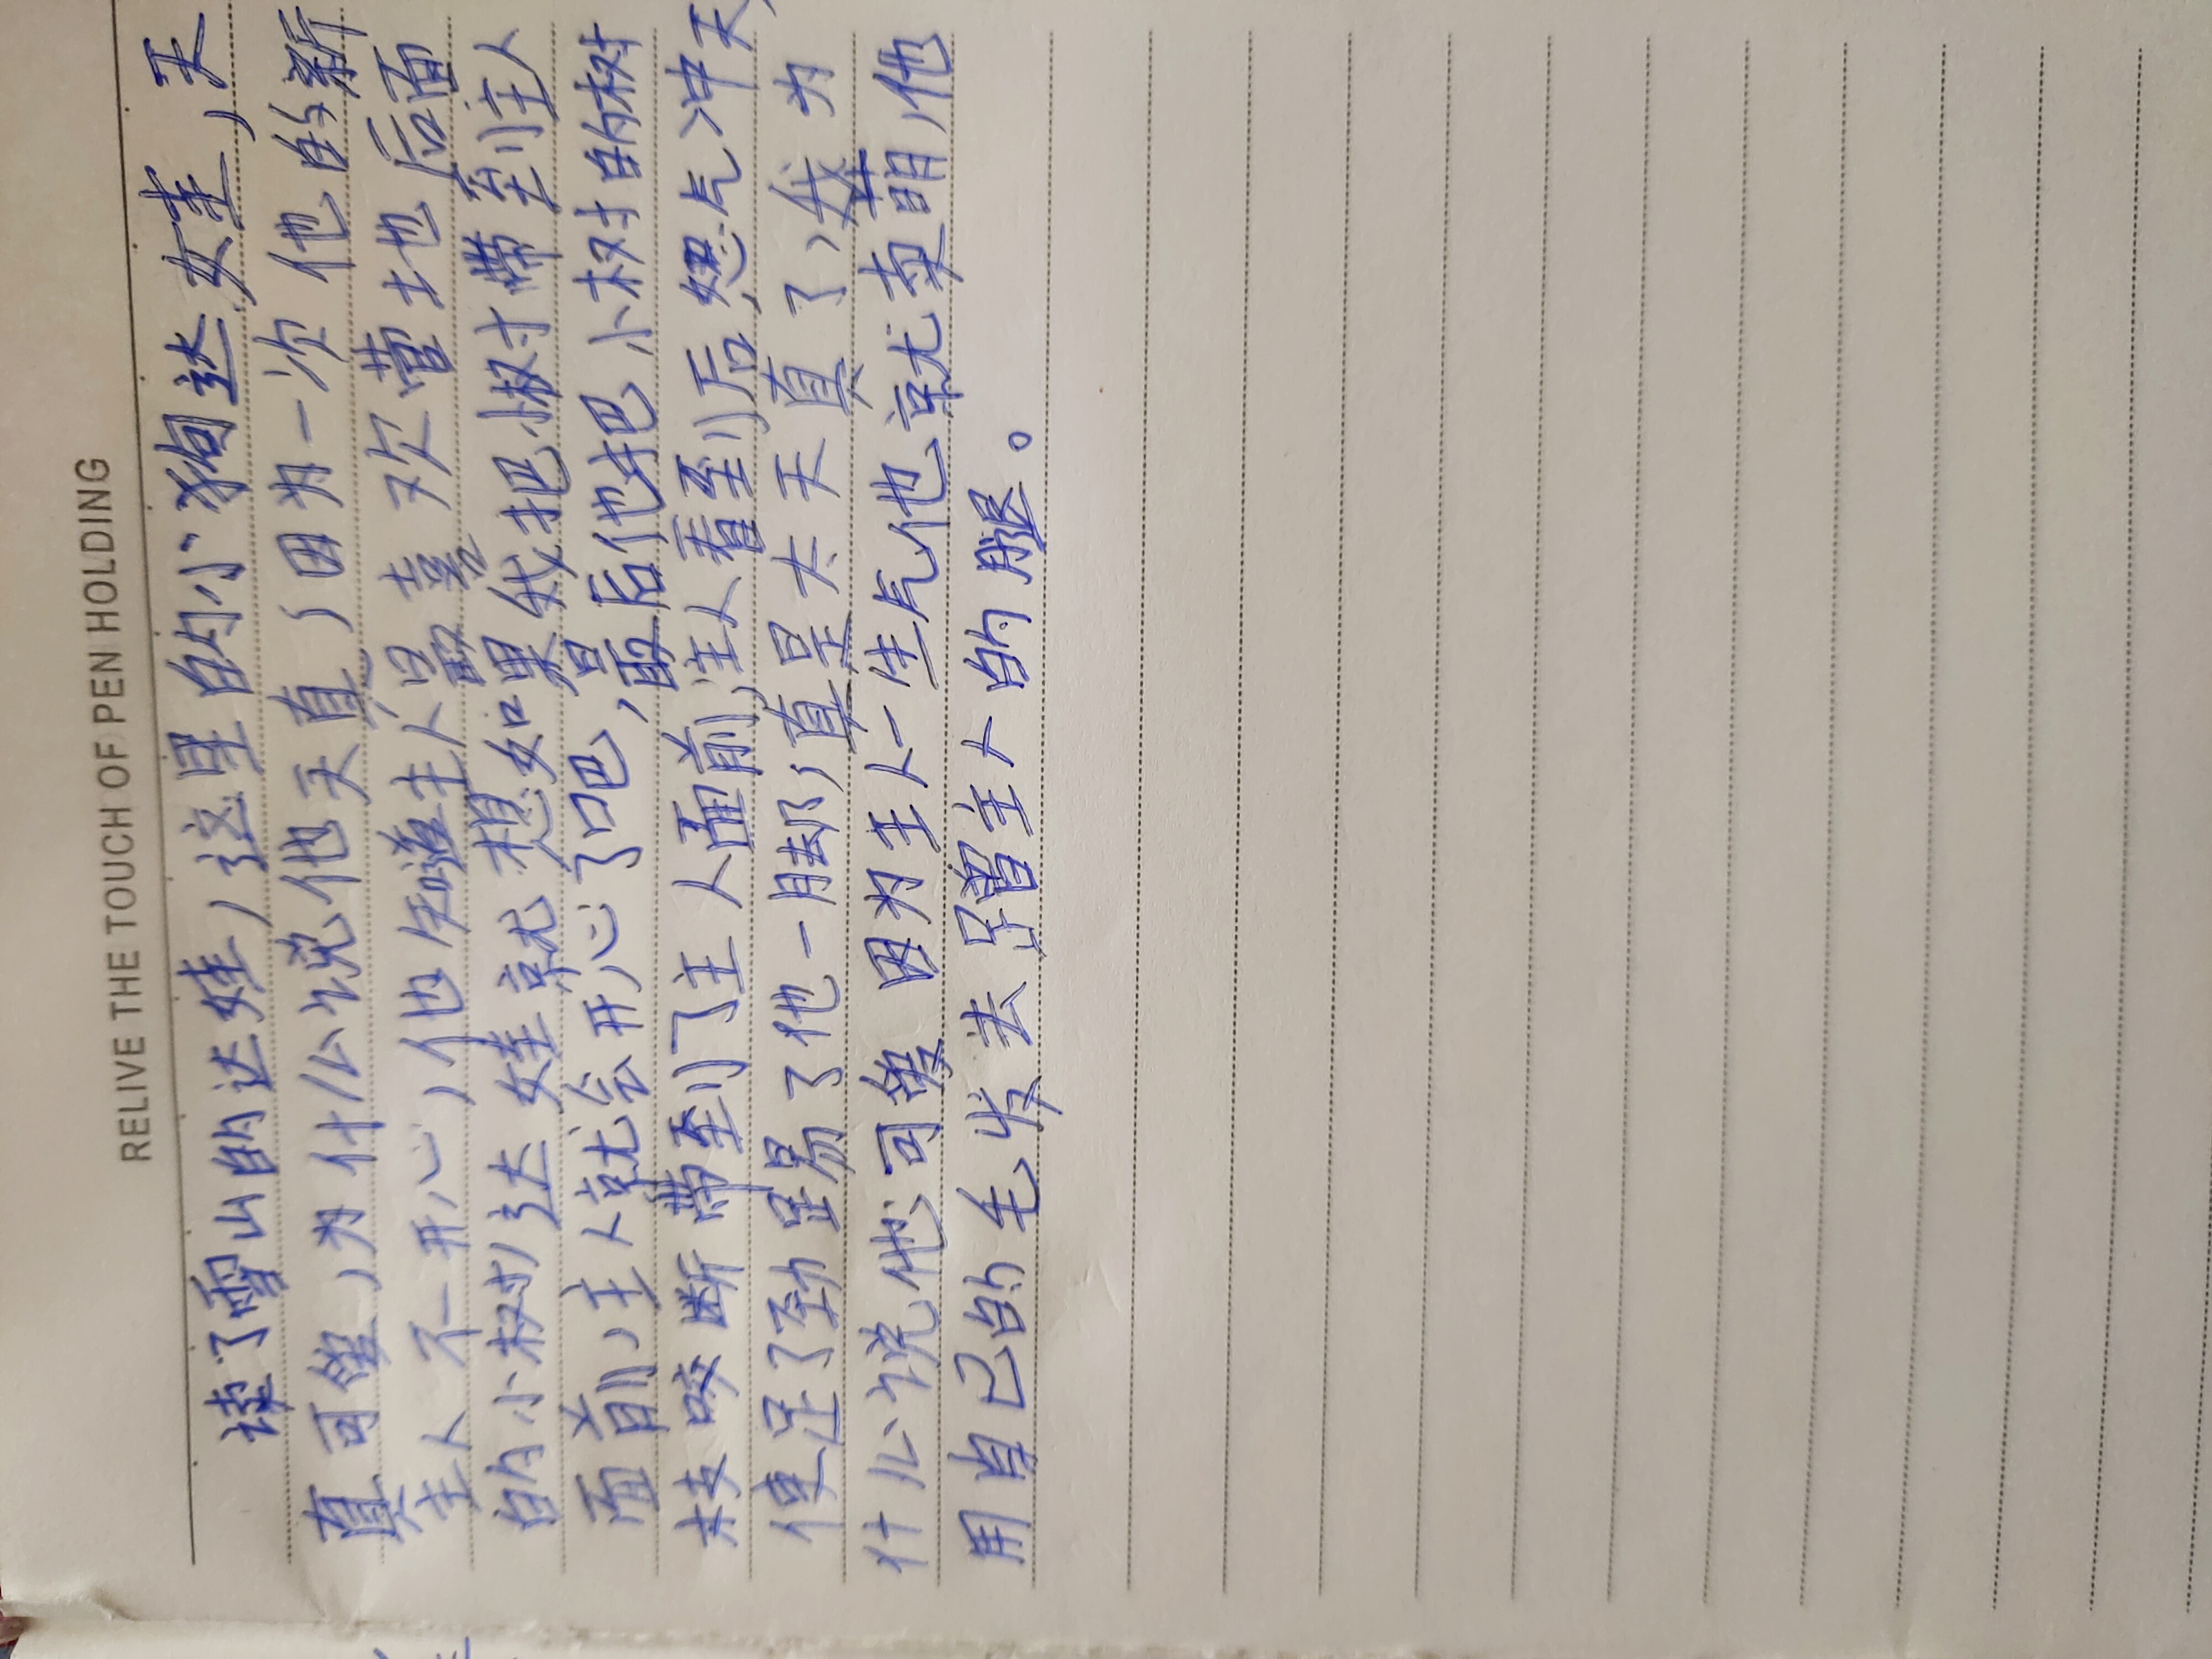 RELIVE THE TOUCH OF PEN HOLDING
读了雪山的达娃,这里的小狗达娃,天
真可爱,为什么说他天真,因为一次他的新
主人不开心,他知道主人最喜欢营地后面
的小树,达娃就想如果我把小树带到主人
面前,主人就会开心了吧,最后他把小树的树
枝咬断带到了主人面前,主人看到后怒气冲天,
使足了劲踢了他一脚,真是太天真了,我为
什么说他可爱因为主人一生气他就卖萌,他
用自己的毛发去蹭主人的腿。